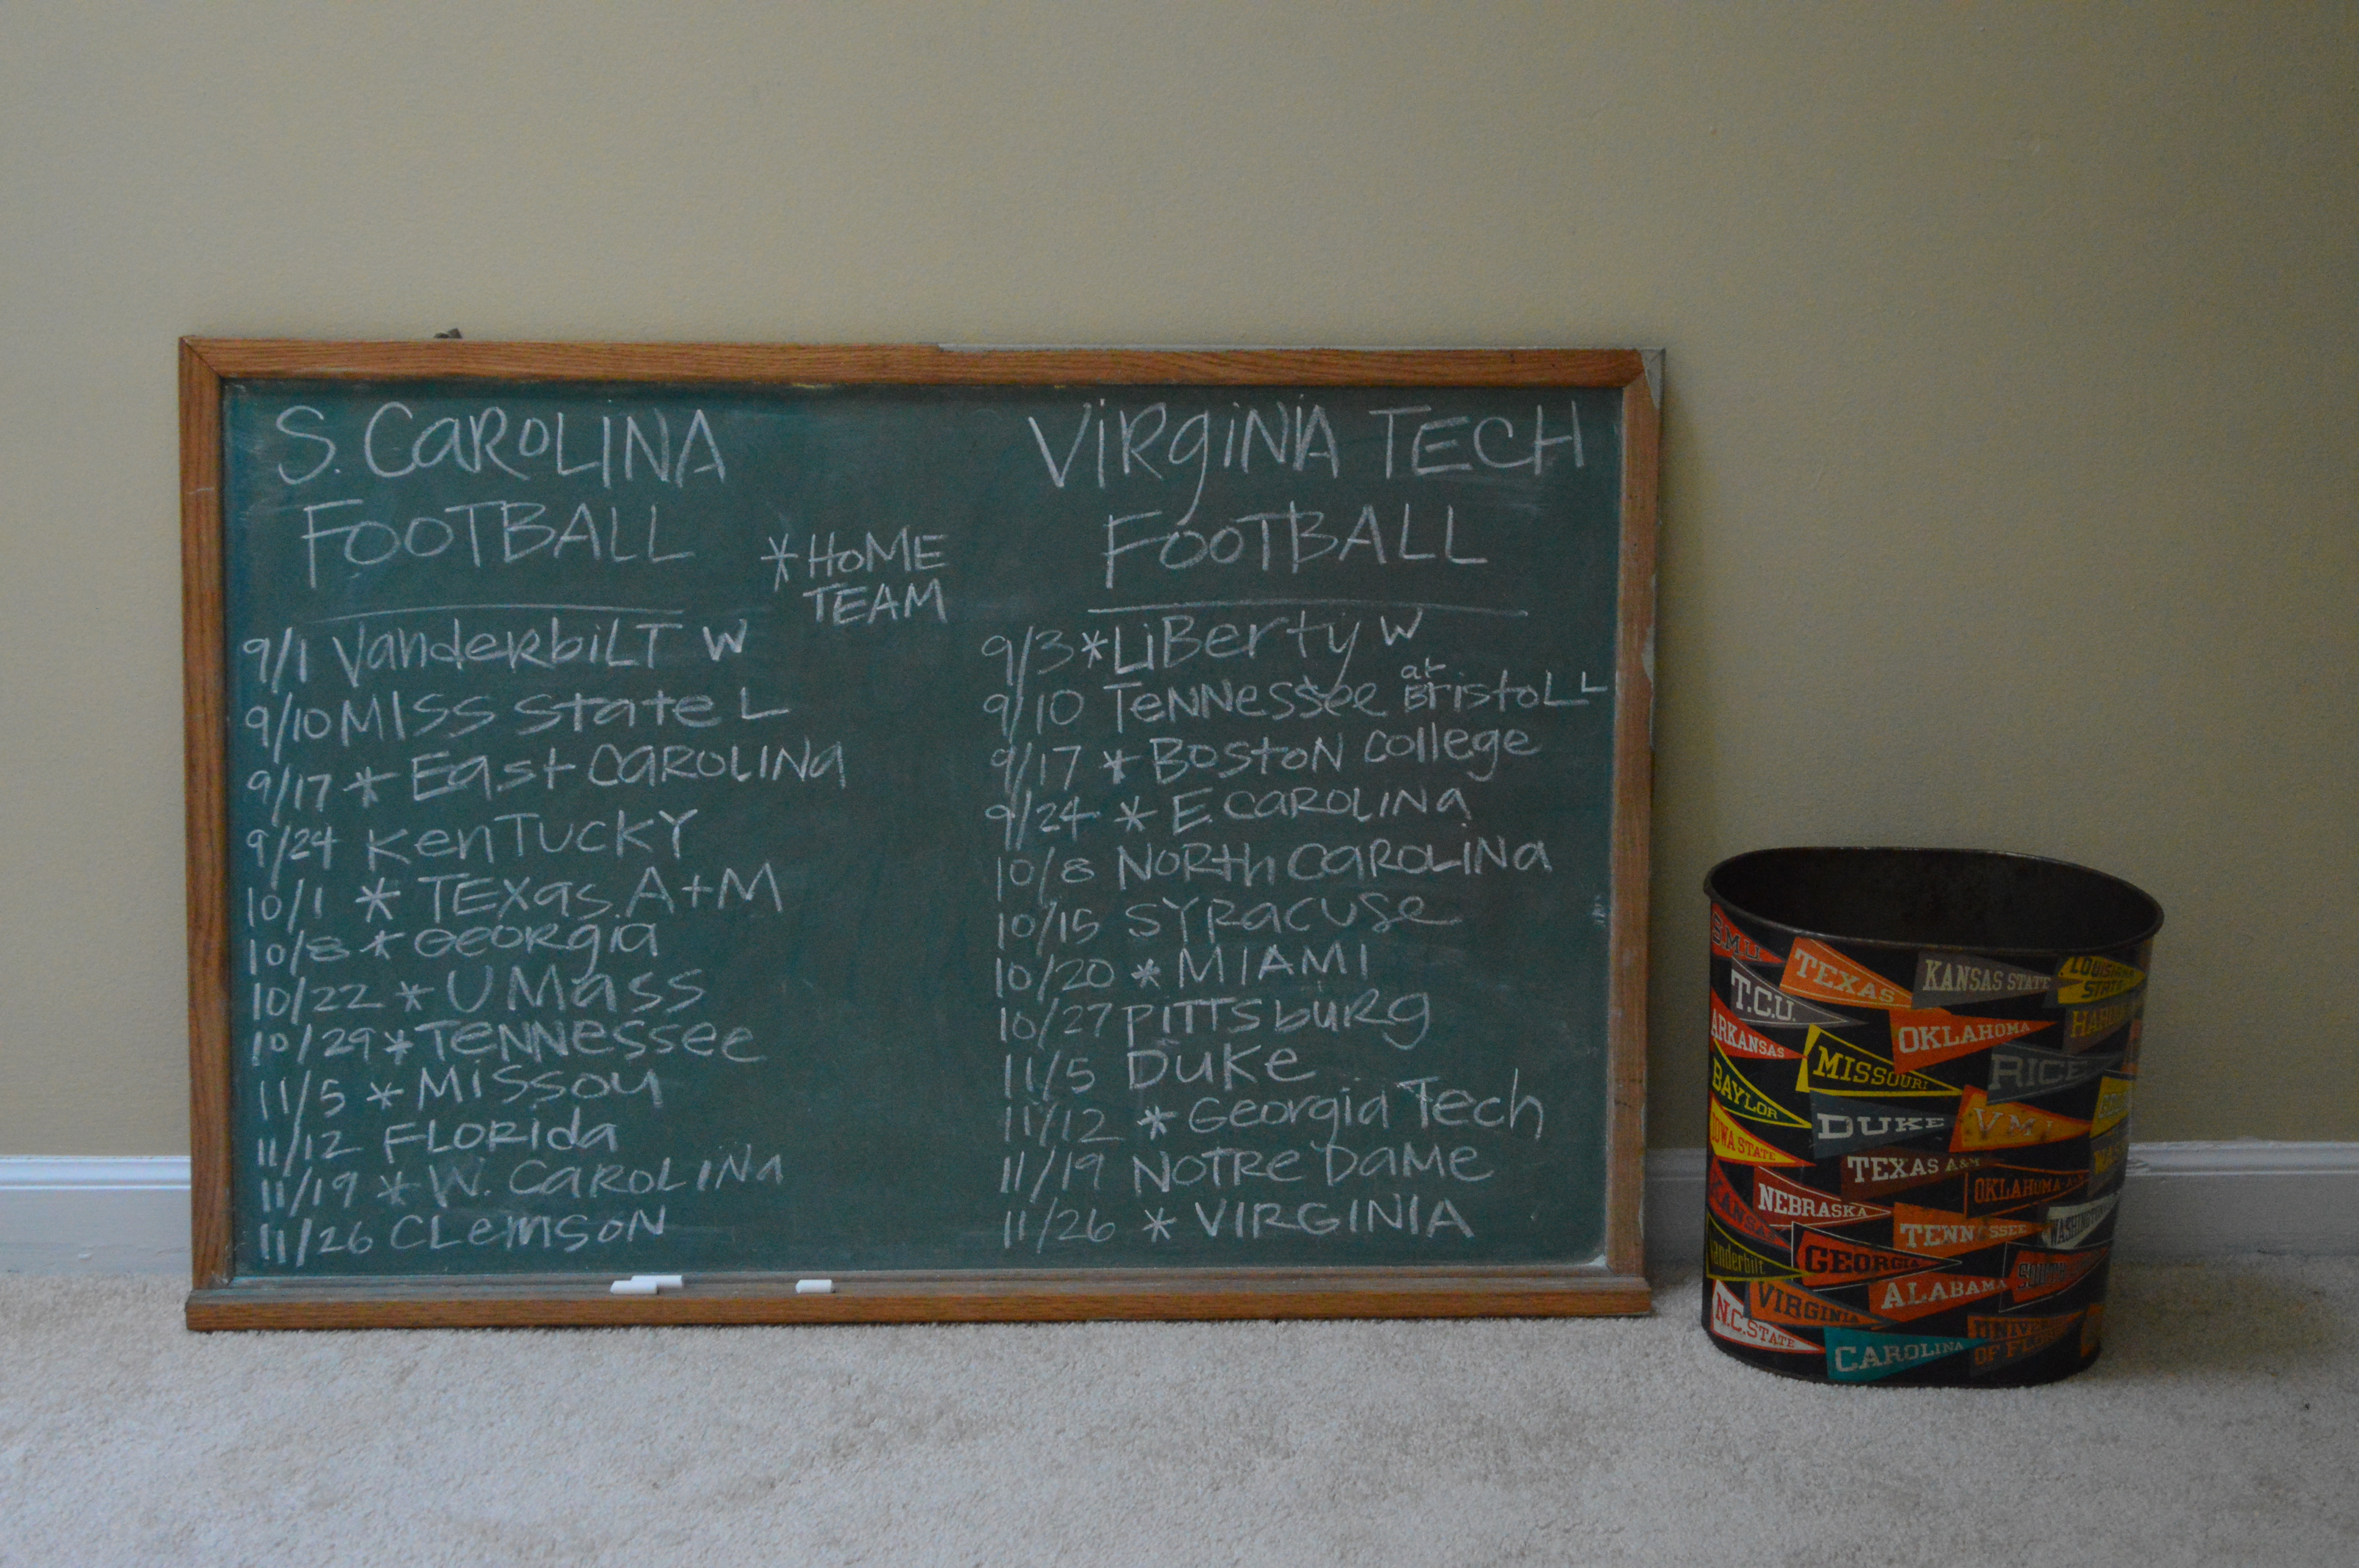 S. CAROLINA
FOOTBALL
* HOME
TEAM
9/1 VanderbiLT W
9/10 MISS State L
9/17 * East CAROLINA
9/24 KenTUCKY
10/1 * TEXas A+M
10/8 * GEORgia
10/22 * UMass
10/29 * TENNessee
11/5 * Missou
11/12 FLORida
11/19 * W. CAROLINA
11/26 CLemsoN
ViRgiNIA TECH
FOOTBALL
9/3 * LiBerty W
9/10 TeNNessee at BristoL L
9/17 * BostoN College
9/24 * E. CAROLINA
10/8 NORth CAROLINa
10/15 SYRacuse
10/20 * MIAMI
10/27 PITTSburg
11/5 DUKe
11/12 * Georgia Tech
11/19 NOTRe Dame
11/26 * VIRGINIA
S.M.U.
TEXAS
KANSAS STATE
LOUISIANA
STATE
T.C.U.
ARKANSAS
OKLAHOMA
BAYLOR
MISSOURI
RICE
IOWA STATE
DUKE
V.M.I.
TEXAS A&M
NEBRASKA
OKLAHOMA
KANSAS
TENNESSEE
WASHINGTON
Vanderbilt
GEORGIA
ALABAMA
VIRGINIA
N.C. STATE
CAROLINA
OF